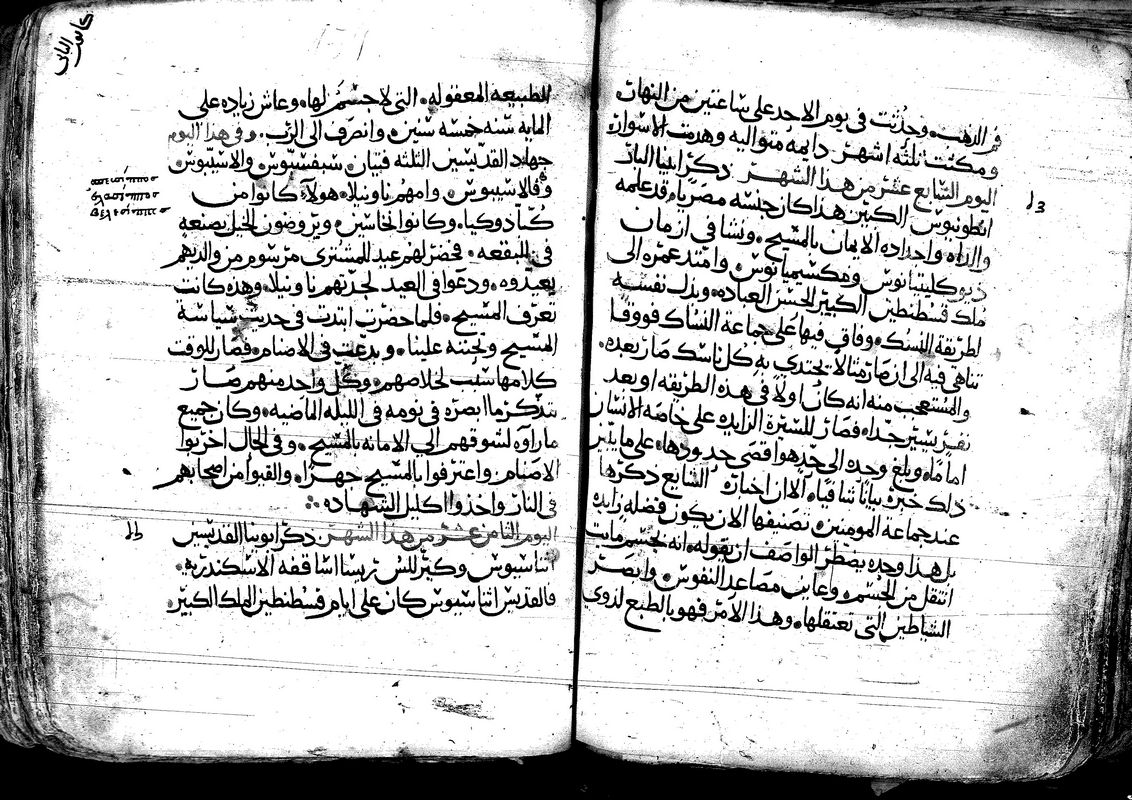 من الرهب. وحدثت في يوم الاحد على ساعتين من النهار
ومكثت ثلثه اشهر دايمه متواليه وهدمت الاسوار
اليوم السابع عشر من هذا الشهر ذكر ابينا البار
انطونيوس الكبير هذا كان جنسه مصريا. قد علمه
والداه واجداده الايمان بالمسيح. ونشا في ازمان
ديوكليتيانوس ومكسيميانوس. وامتد عمره الى
ملك قسطنطين الكبير الحسن العباده. وبذل نفسه
لطريقة النسك. وفاق فيها على جماعة النساك فووقا
تناهى فيه الى ان صار مثالا يحتدي به كل ناسك صار بعده.
والمستعجب منه انه كان اولا في هذه الطريقه او بعد
نفر يسير جدا. فصار للسيره الزايده على خاصه الانسان
اماما. وبلغ وحده الى حد هو اقصى حدودها. على ما يبين
ذلك خبره بيانا شافيا. الا ان اخباره الشايع ذكرها
عند جماعة المومنين. تصنيفها الان يكون فضله زايده
بل هذا وحده يضطر الواصف ان يقوله. انه بجسم مايت
انتقل من الجسم. وعاين مصاعد النفوس. وابصر
الشياطين التي تعتقلها. وهذا الامر فهو بالطبع لذوي
كانون الثاني
الطبيعه المعقوله. التي لا جسم لها. وعاش زياده على
المايه سنه خمسه سنين. وانصرف الى الرب. وفي هذا اليوم
جهاد القديسين الثلثه فتيان سبفسبوس والاسبوس
وفالاسبوس. وامهم ناونيلا. هولاء كانوا من
كبادوكيا. وكانوا نخاسين. ويروضون الخيل بصنعه
في البقعه. فحضر لهم عيد للمشتري مرسوم من والديهم
يعيدوه. ودعوا في العيد لجدتهم ناونيلا. وهذه كانت
تعرف المسيح. فلما حضرت ابتدت في حديث سياسة
المسيح ومحبته علينا. وبدعت في الاصنام. فصار للوقت
كلامها سبب لخلاصهم. وكل واحد منهم صار
يتذكر ما ابصره في نومه في الليله الماضيه. وكان جميع
ما راوه لشوقهم الى الامانه بالمسيح. وفي الحال اخربوا
الاصنام. واعترفوا بالمسيح جهرا. والقبوا من اصحابهم
في النار واخذوا اكليل الشهاده.
اليوم الثامن عشر من هذا الشهر ذكر ابوينا القديسين
اثناسيوس وكيرللس رييسا اساقفه الاسكندريه.
فالقديس اثناسيوس كان على ايام قسطنطين الملك الكبير